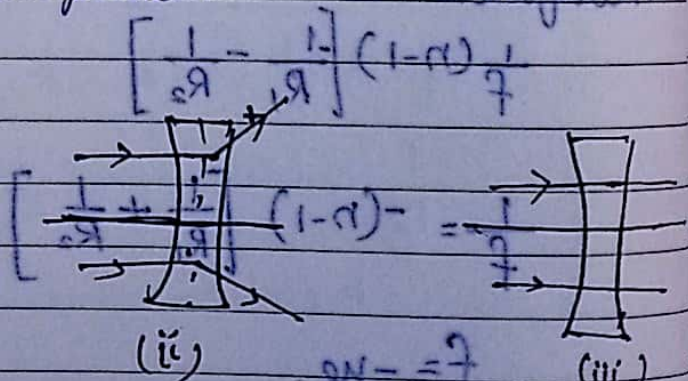 1/f (n-1) [1/R₁ - 1/R₂]
1/f = -(n-1) [1/R₁ + 1/R₂]
(ii) f = -ve (iii)